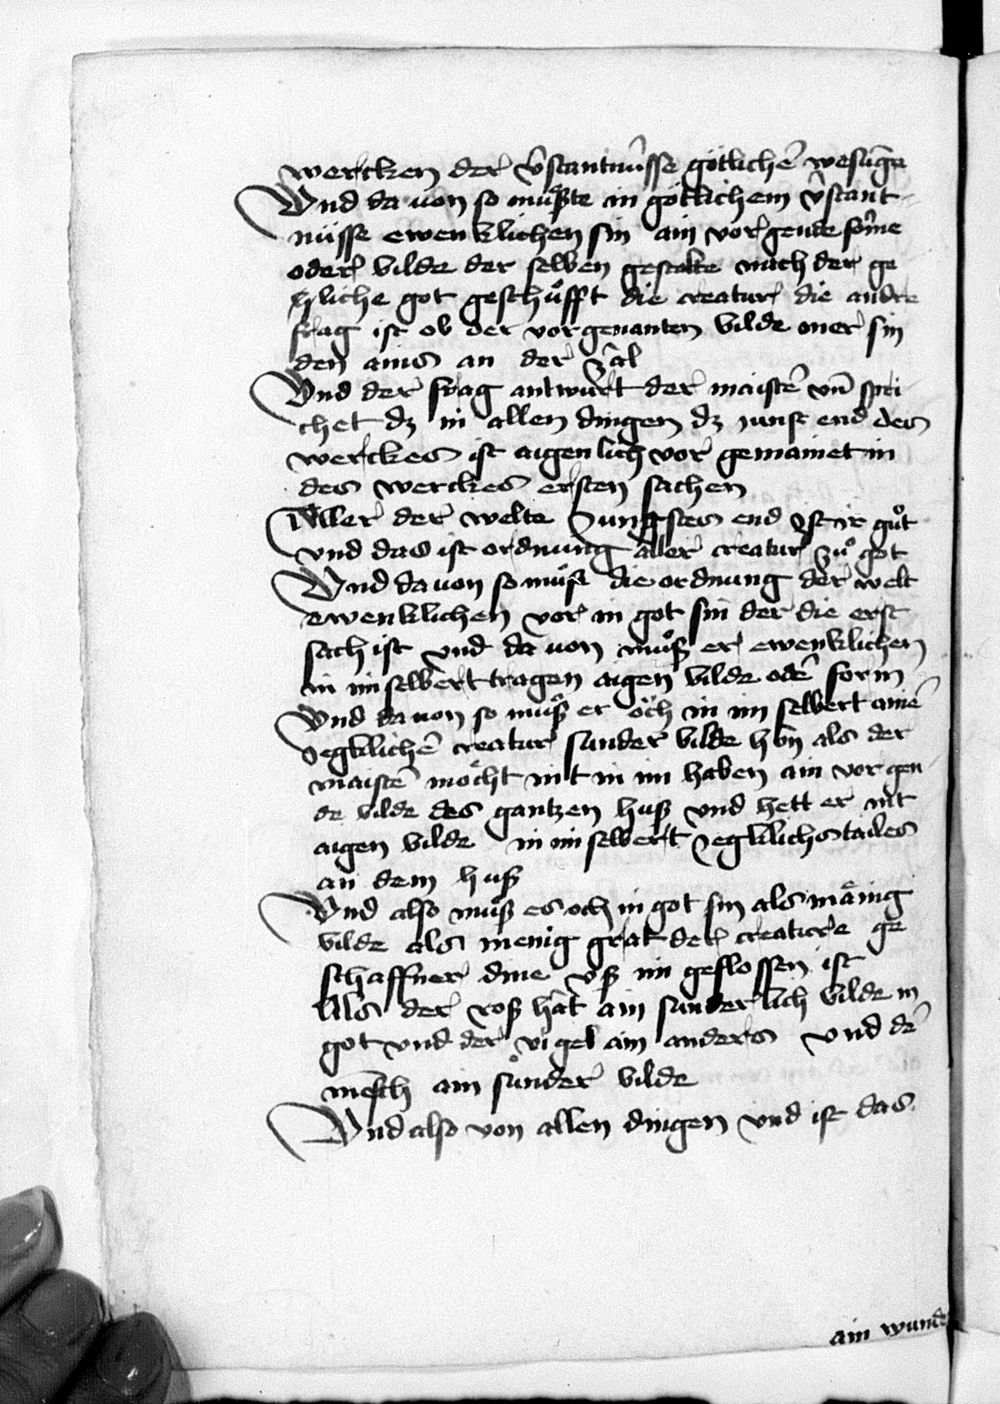 wercken der v̄stantnüsse götlichē wesūge
Vnd da uon so müste in götlichem v̄stant
nüsse ewenklichen sin ain vorgende forme
oder bilde der selben gestalte nach der ge
got geschüfft die creatur die andre
frag ist ob der vorgenanten bilde mer sin
den ains an der zal
Vnd der frag antwürt der maistē vn̄ spri
chet dz in allen dingen dz junst end des
werckes ist aigenlich vor gemainet in
des werckes ersten sachen
Aller der welte Jungstes end ist ir guͦt
vnd das ist ordnung aller creatur zuͦ got
Vnd da uon so muͦst die ordnung der welt
ewenklichen vor in got sin der die erst
sach ist vnd da uon muͦß er ewenklichen
in im selbert tragen aigen bilde odē form
Vnd da uon so muͦß er öch in im selbert ainē
Jegklichē creatur sunder bilde hon als der
maistē möcht nit in im haben ain vorgen
de bilde des gantzen huß vnd hett er nit
aigen bilde in im selbert Jegklichs tailes
an dem huß
Vnd also muͦß es och in got sin als mänig
bilde als menig grat der creature ge
schaffner dine vß im geflossen ist
Als der roß hat ain sunderlich bilde in
got vnd der vigel ain anders vnd dē
mēsch ain sunder bilde
Vnd also von allen dingen vnd ist das
ain wund